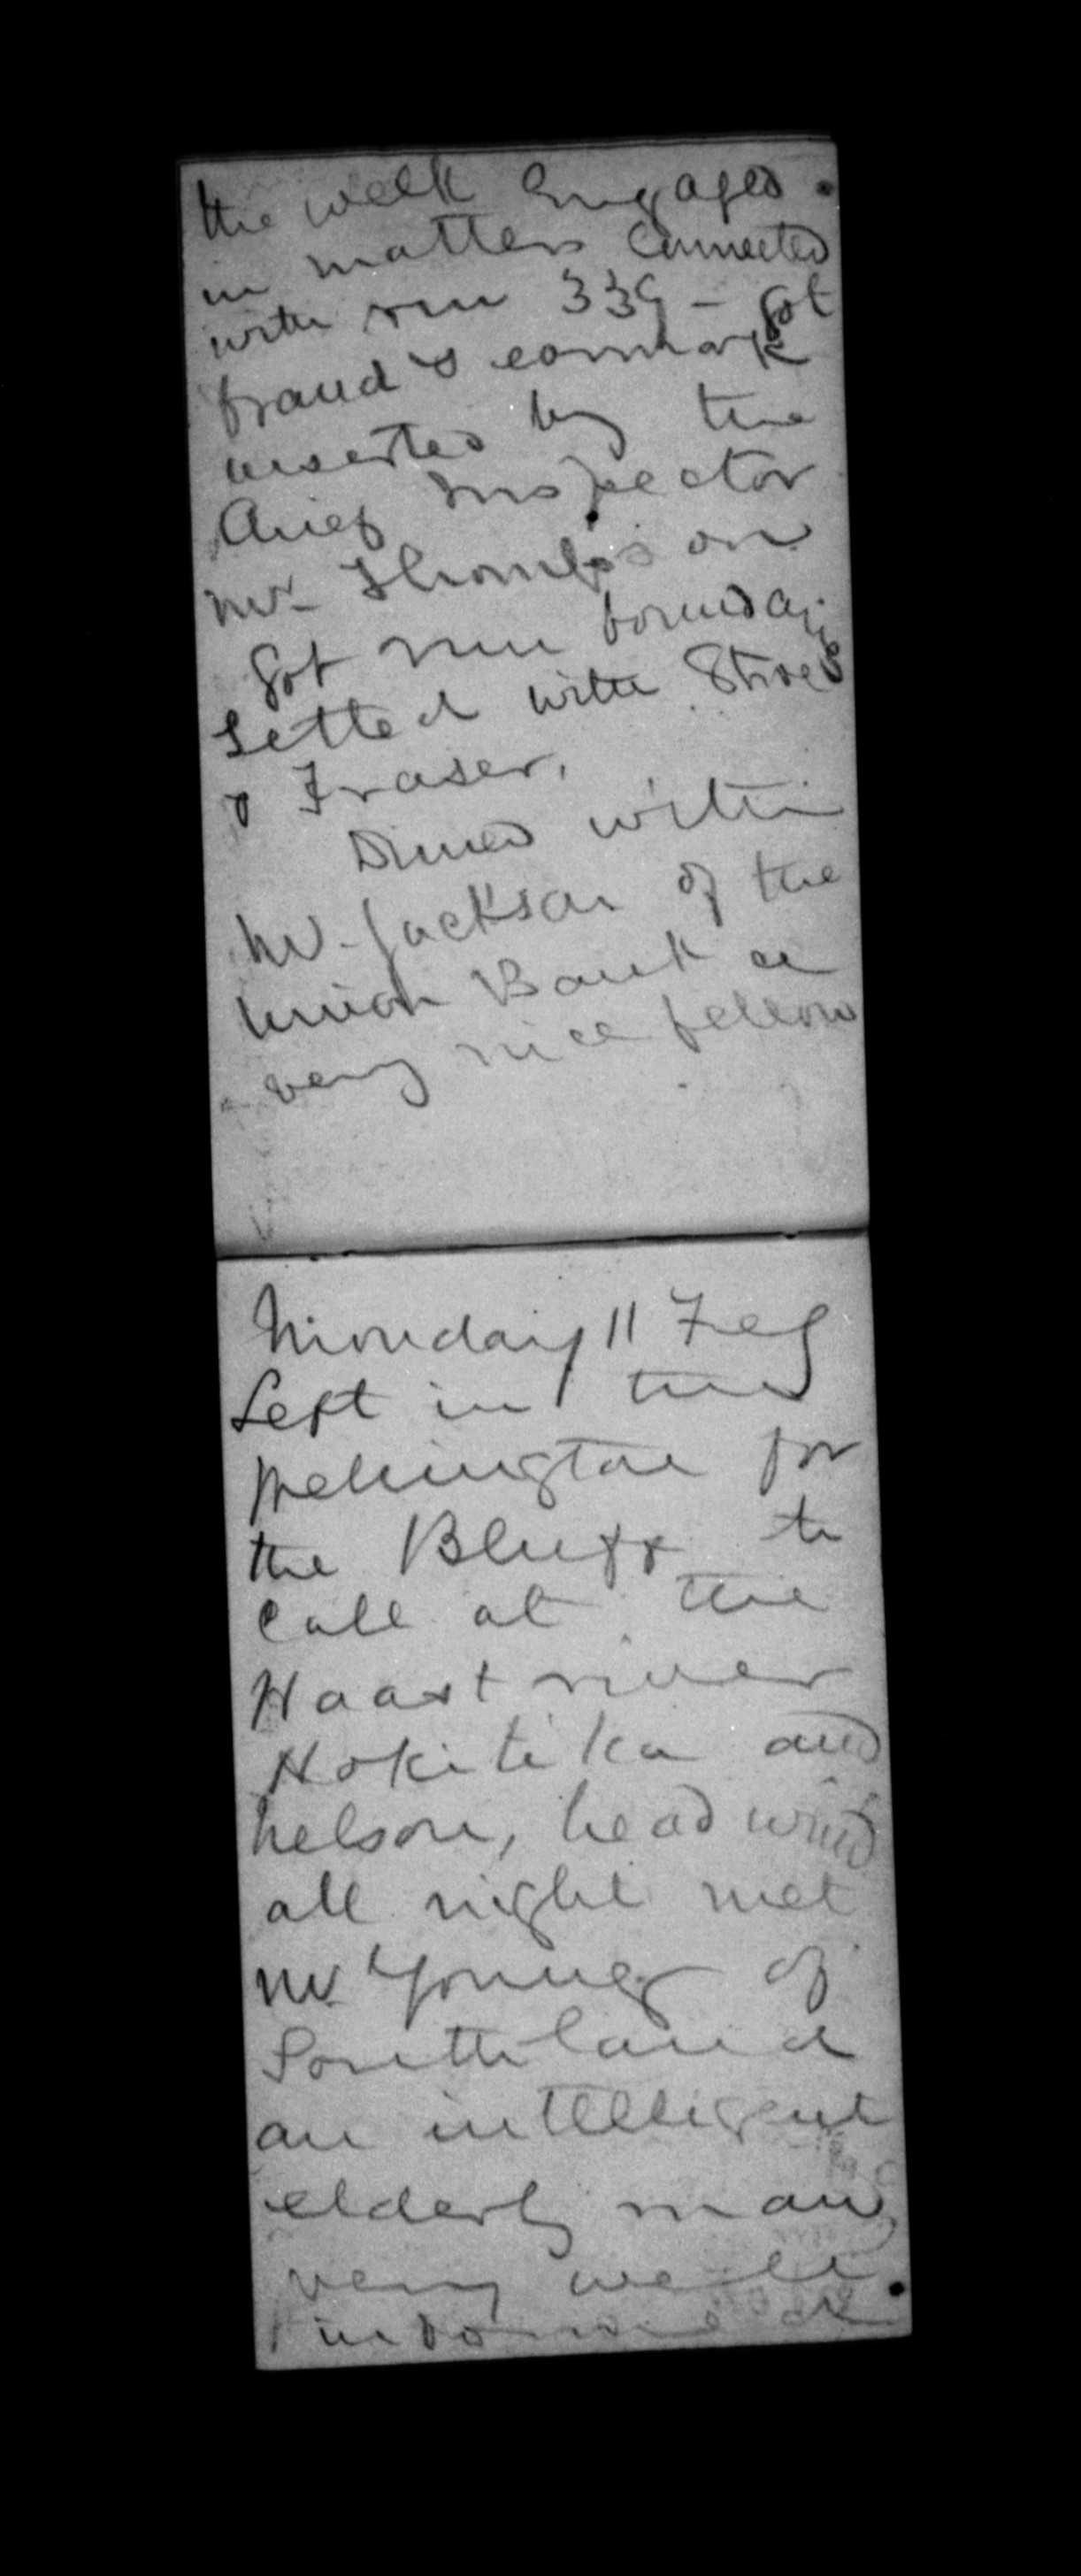 the week Engaged
in matters Connected
with run 339 - got
brand & earmark
inserted by the
Chief Inspector
Mr Thompson
Got run boundaries
Settled with
& Fraser,
Dined with
Mr Jackson of the
Union Bank a
very nice fellow
Monday 11 Feb
Left in the
Wellington for
the Bluff to
Call at the
Haast river
Hokitika and
Nelson, head wind
all night met
Mr Young of
Southland
an intelligent
elderly man,
very well
informed